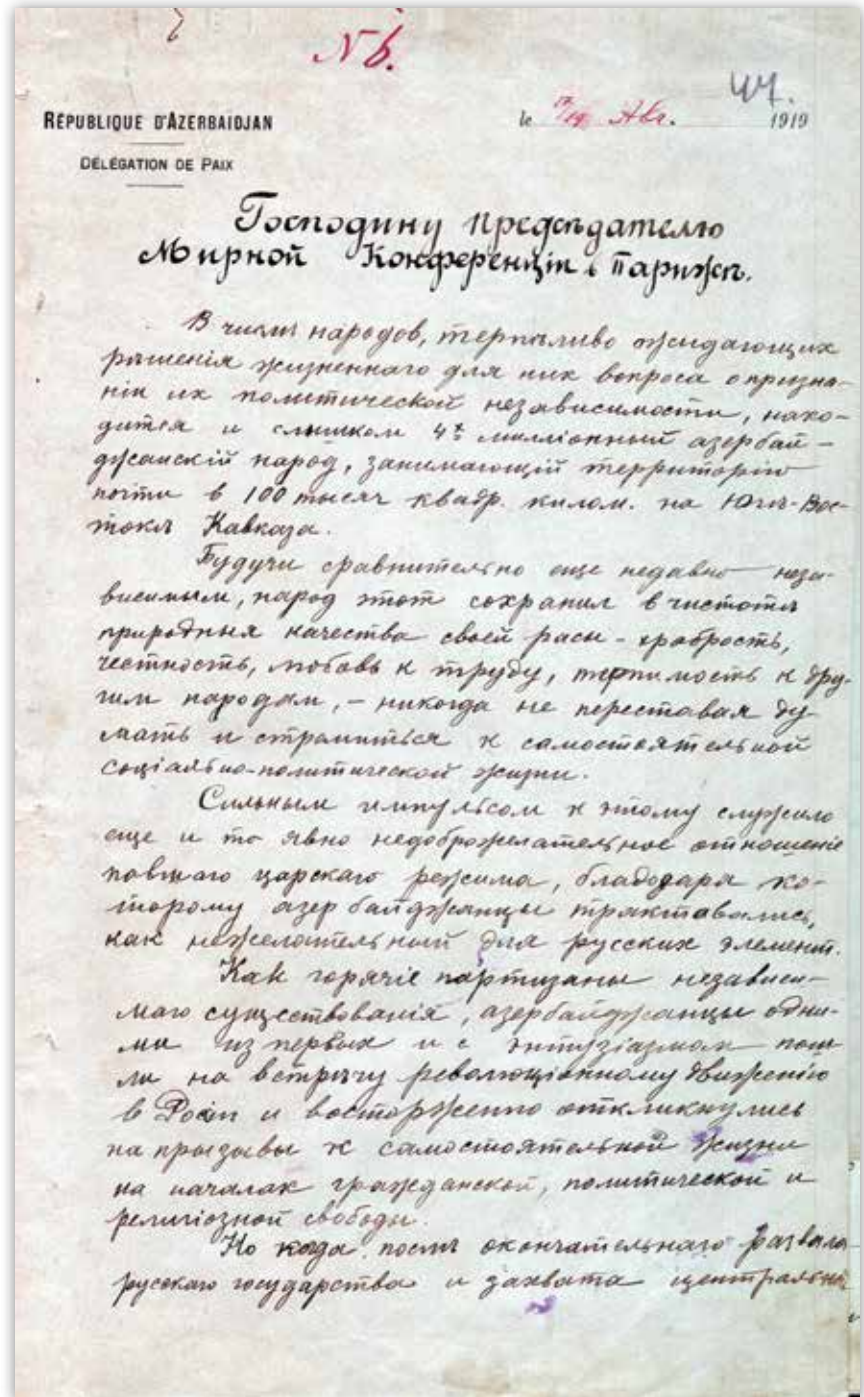 N 6.
44.
RÉPUBLIQUE D'AZERBAÏDJAN
DÉLÉGATION DE PAIX
le 17/19 Авг. 1919
Господину председателю
Мирной Конференціи в Парижѣ.
В числѣ народов, терпѣливо ожидающих
рѣшенія жизненнаго для них вопроса о призна-
ніи их политической независимости, нахо-
дится и слишком 4х миллионный азербай-
джанскій народ, занимающій территорію
почти в 100 тысяч квадр. килом. на Югѣ-Вос-
токѣ Кавказа.
Будучи сравнительно еще недавно неза-
висимым, народ этот сохранил в чистотѣ
природныя качества своей расы - храбрость,
честность, любовь к труду, терпимость к дру-
гим народам, - никогда не переставая ду-
мать и стремиться к самостоятельной
соціально-политической жизни.
Сильным импульсом к этому служило
еще и то явно недоброжелательное отношеніе
павшаго царскаго режима, благодаря ко-
торому азербайджанцы трактовались,
как нежелательный для русских элемент.
Как горячіе партизаны независи-
маго существованія, азербайджанцы одни-
ми из первых и с энтузіазмом пош-
ли на встрѣчу революціонному движенію
в Росіи и восторженно откликнулись
на призывы к самостоятельной жизни
на началах гражданской, политической и
религіозной свободы.
Но когда послѣ окончательнаго развала
русскаго государства и захвата центральн